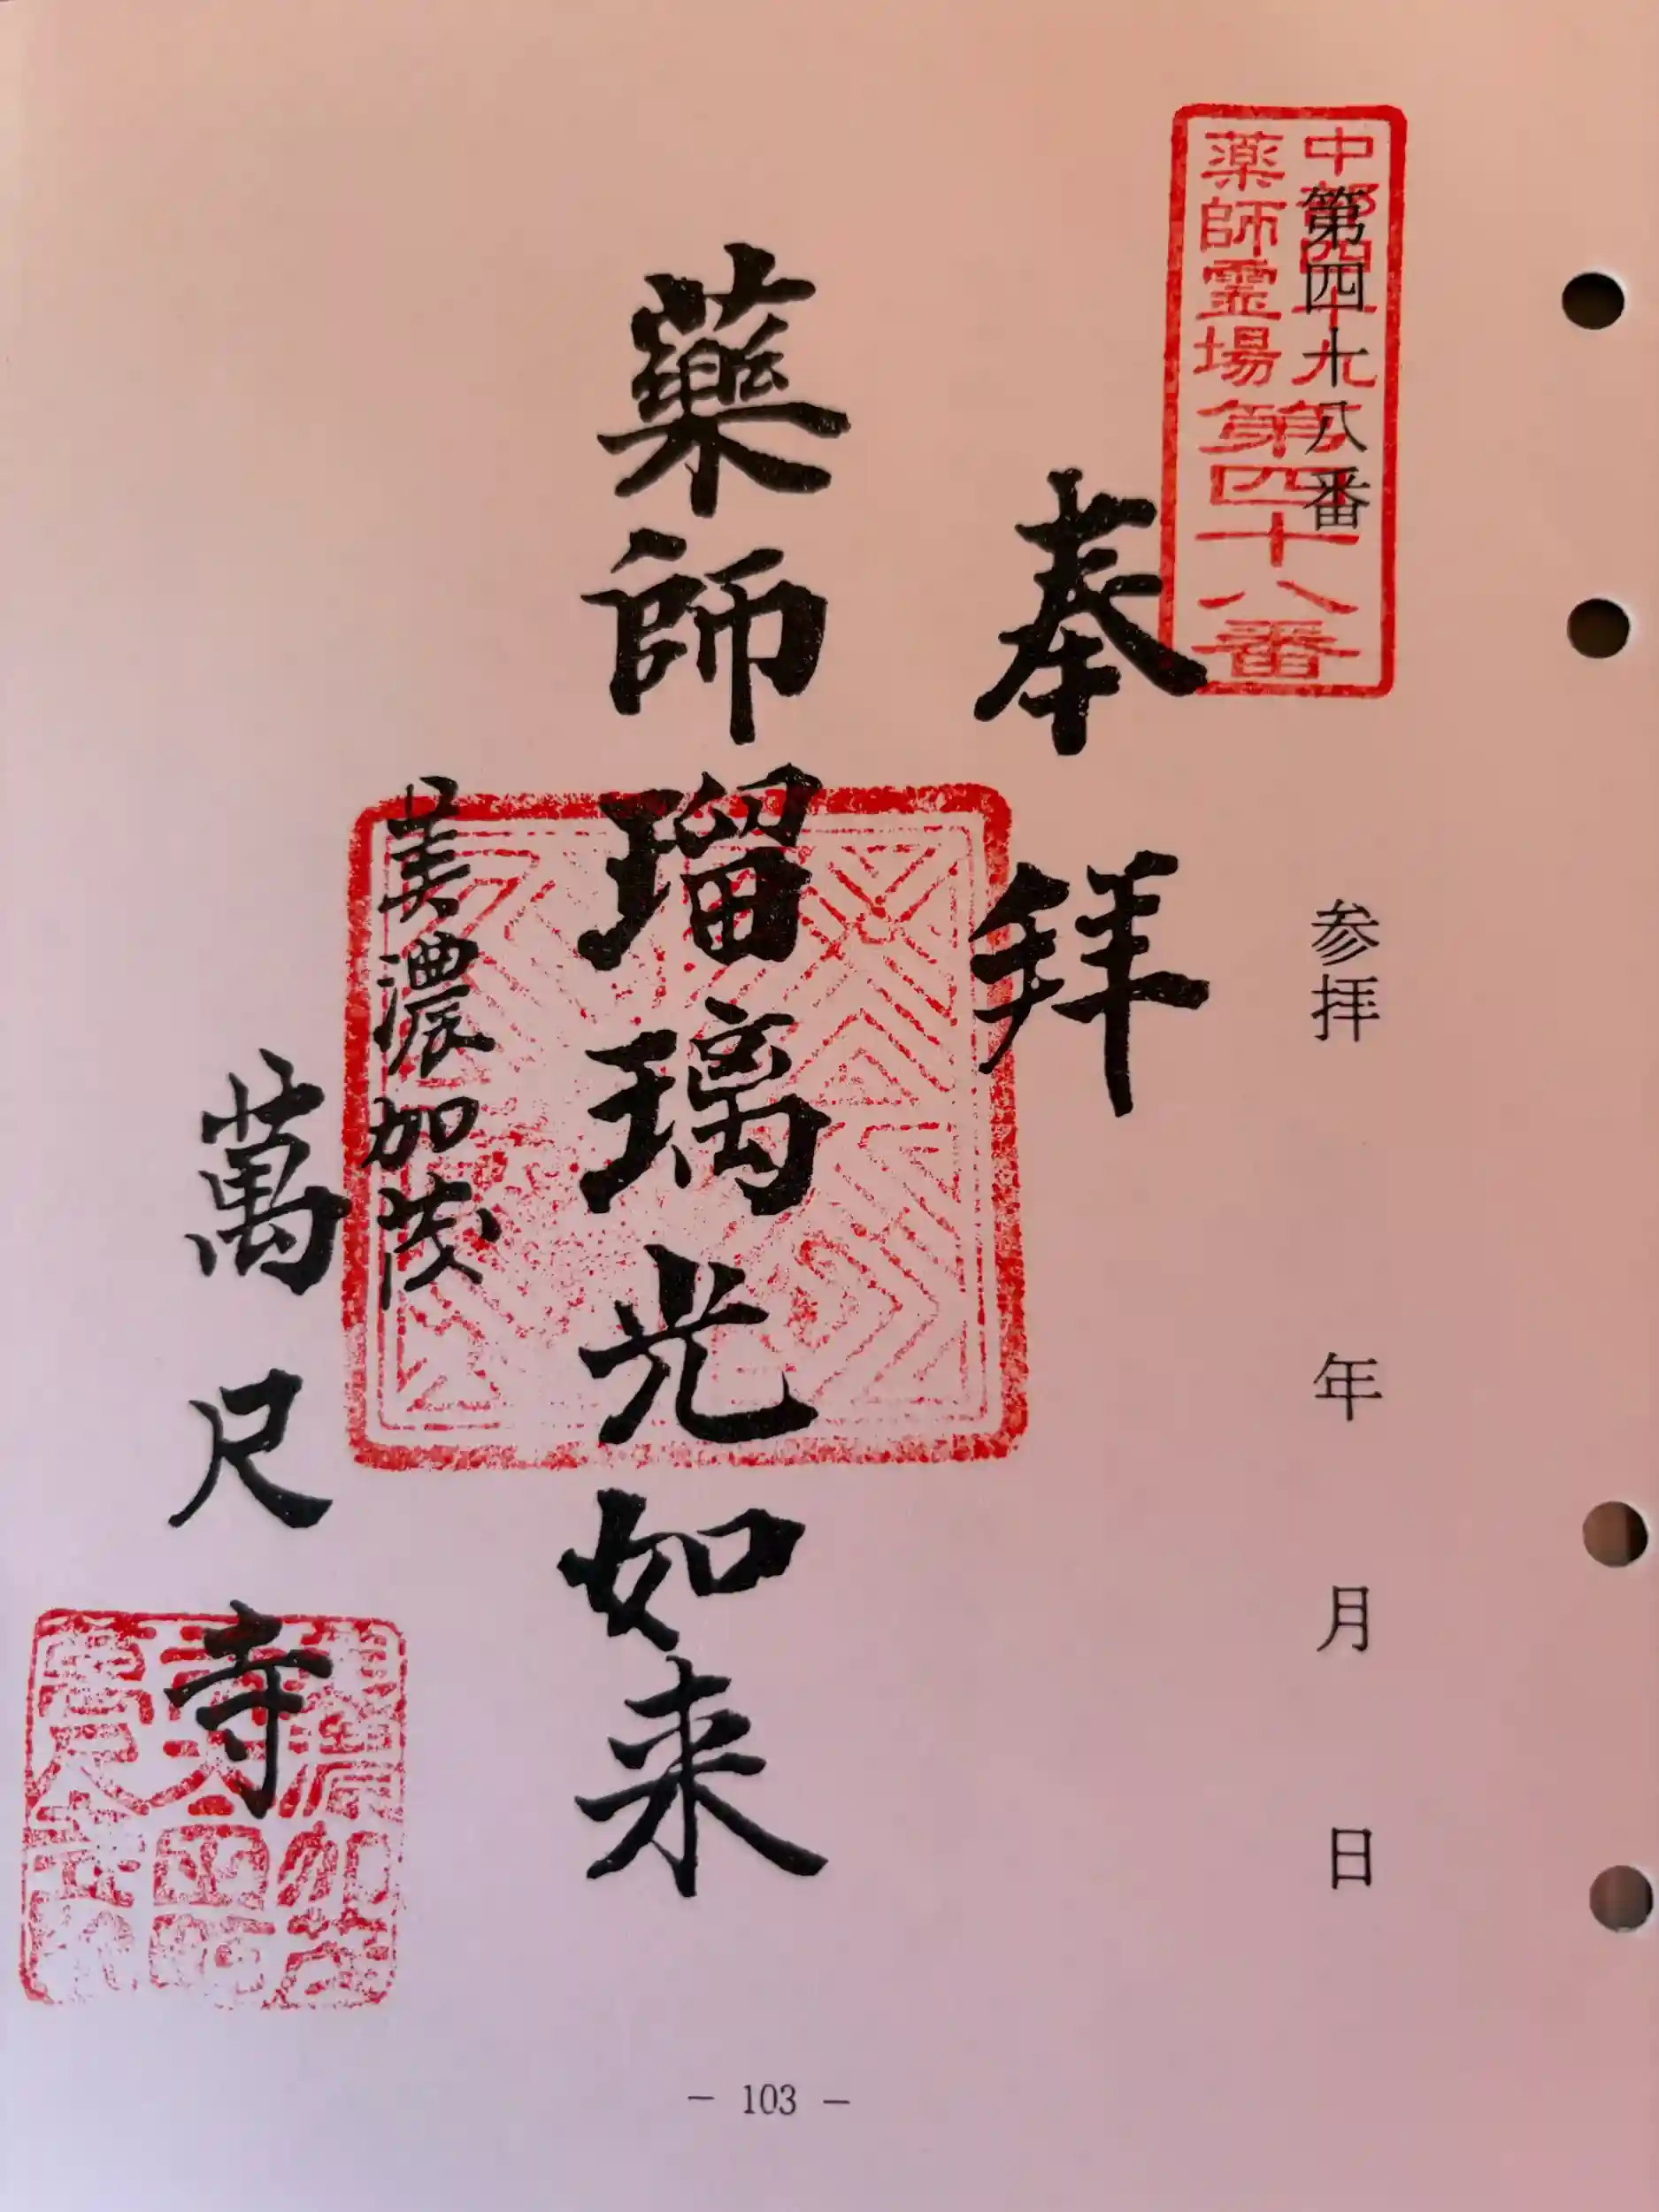 中部四十九
薬師霊場第四十八番
第四十八番
参拝 年 月 日
奉拝
薬師瑠璃光如来
美濃加茂
萬尺寺
- 103 -